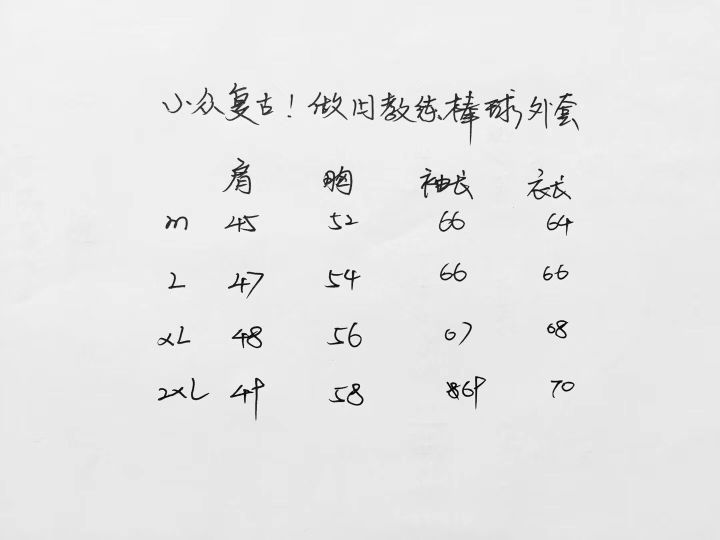 小众复古！做旧教练棒球外套
肩 胸 袖长 衣长
m 45 52 66 64
L 47 54 66 66
xL 48 56 67 68
2xL 49 58 69 70